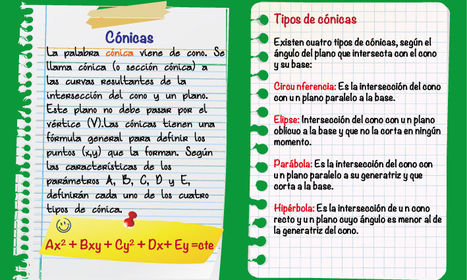 Cónicas
La palabra cónica viene de cono. Se
llama cónica (o sección cónica) a
las curvas resultantes de la
intersección del cono y un plano.
Este plano no debe pasar por el
vértice (V).Las cónicas tienen una
fórmula general para definir los
puntos (x,y) que la forman. Según
las características de los
parámetros A, B, C, D y E,
definirán cada uno de los cuatro
tipos de cónica.
Ax² + Bxy + Cy² + Dx+ Ey =cte
Tipos de cónicas
Existen cuatro tipos de cónicas, según el
ángulo del plano que intersecta con el cono
y su base:
Circu nferencia: Es la intersección del cono
con u n plano paralelo a la base.
Elipse: Intersección del cono con u n plano
oblicuo a la base y que no la corta en ningún
momento.
Parábola: Es la intersección del cono con
u n plano paralelo a su generatriz y que
corta a la base.
Hipérbola: Es la intersección de u n cono
recto y u n plano cuyo ángulo es menor al de
la generatriz del cono.